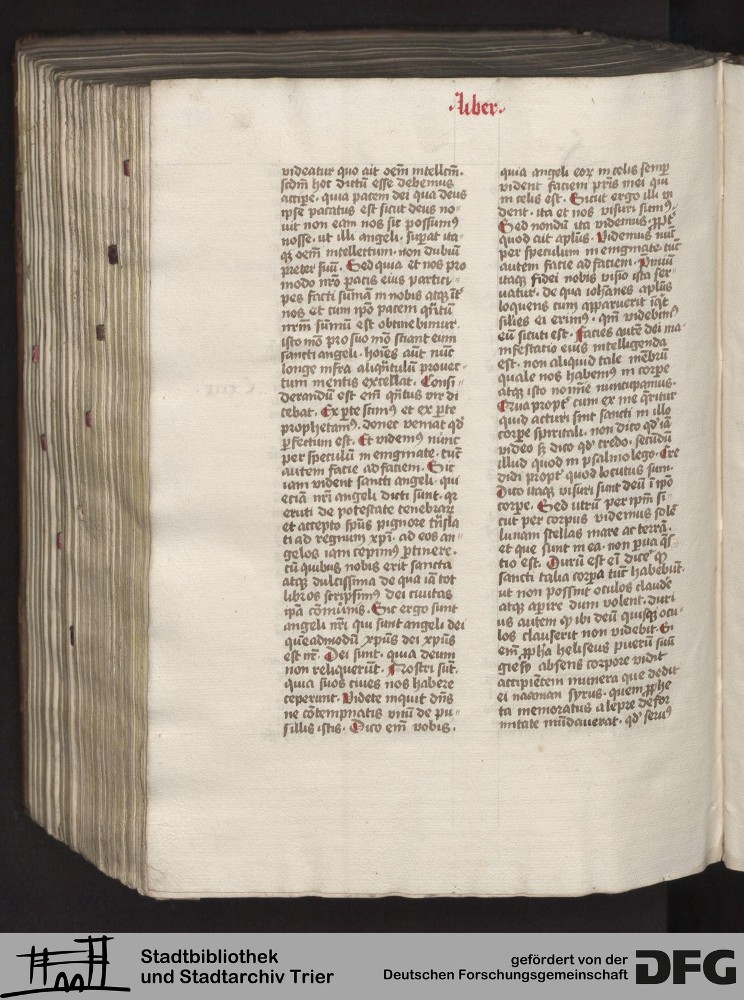 ·liber·
videatur quo ait oēm intellcm̄·
scdm̄ hoc dictū esse debemus
accipe· quia pacem dei qua deus
ipse pacatus est sicut deus no
uit non eam nos sic possum⁹
nosse· ut illi angeli· supat ita
qꝫ oēm intellectum· non dubiū
preter suū· Sed quia et nos pro
modo nr̄o pacis eius partici
pes facti sumꝰ in nobis atqꝫ int̄
nos et cum ipo pacem qn̄tū
nr̄m sūmū est obtinebimur·
isto mō pro suo mō sciant eum
sancti angeli· hoīes aūt nūc
longe infra aliqn̄tulū prouec
tum mentis excellat· Consi
derandū est em̄ qn̄tus vir di
cebat· Ex ꝑte scim⁹ et ex ꝑte
prophetam⁹· donec veniat qd̓
ꝑfectum est· Et videm⁹ nunc
per speculū in enigmate· tūc
autem facie ad faciem· Sic
iam vident sancti angeli· qui
eciā nr̄i angeli dicti sunt· qꝛ
eruti de potestate tenebraꝝ
et accepto sp̄us pignore tn̄sla
ti ad regnum xp̄i· ad eos an
gelos iam cepim⁹ ꝑtinere·
cū quibus nobis erit sancta
atqꝫ dulcissima de qua iā tot
libros scripsim⁹ dei ciuitas
ipā cōmunis· Sic ergo sunt
angeli nr̄i qui sunt angeli dei
quēadmodū xp̄us dei xp̄us
est nr̄· Dei sunt· quia deum
non reliquerūt· Nostri sūt·
quia suos ciues nos habere
ceperunt· Videte inquit dn̄s
ne cōtempnatis vnū de pu
sillis istis· Dico em̄ vobis·
quia angeli eoꝝ in celis semꝑ
vident faciem pr̄is mei qui
in celis est· Sicut ergo illi vi
dent· ita et nos visuri sum⁹·
Sed nondū ita videmus· ꝓpt̓
quod ait apl̄us· Videmus nūc
per speculum in enigmate· tūc
autem facie ad faciem· Premiū
itaqꝫ fidei nobis visio ista ser
uatur· de qua iohānes apl̄us
loquens cum apparuerit inqt
similes ei erim⁹· qm̄ videbim⁹
eū sicuti est· Facies autē dei ma
nifestatio eius intelligenda
est· non aliquid tale mēbrū
quale nos habem⁹ in corpe
atqꝫ isto noīne nuncupamus·
Quapropt̓ cum ex me qritur
quid acturi sint sancti in illo
corpe spiritali· non dico qd̓ iā
video sꝫ dico qd̓ credo· secūdū
illud quod in psalmo lego· Cre
didi propt̓ quod locutus sum·
Dico itaqꝫ visuri sunt deū in ipo
corpe· Sed vtrū per ipm̄ si
cut per corpus videmus solē
lunam stellas mare ac terrā·
et que sunt in ea· non parua q̄s
tio est· Durū est em̄ dicē qd̓
sancti talia corpa tūc habebūt·
ut non possint oculos claudē
atqꝫ apire dum volent· duri
us autem qd̓ ibi deū quisqꝫ ocu
los clauserit non videbit· Si
em̄ ꝓpha heliseus puerū suū
giesy absens corpore vidit
accipiētem munera que dedit
ei naaman syrus· quem ꝓphe
ta memoratus a lepre defor
mitate mūdauerat· qd̓ seru⁹
Stadtbibliothek
und Stadtarchiv Trier
gefördert von der
Deutschen Forschungsgemeinschaft
DFG